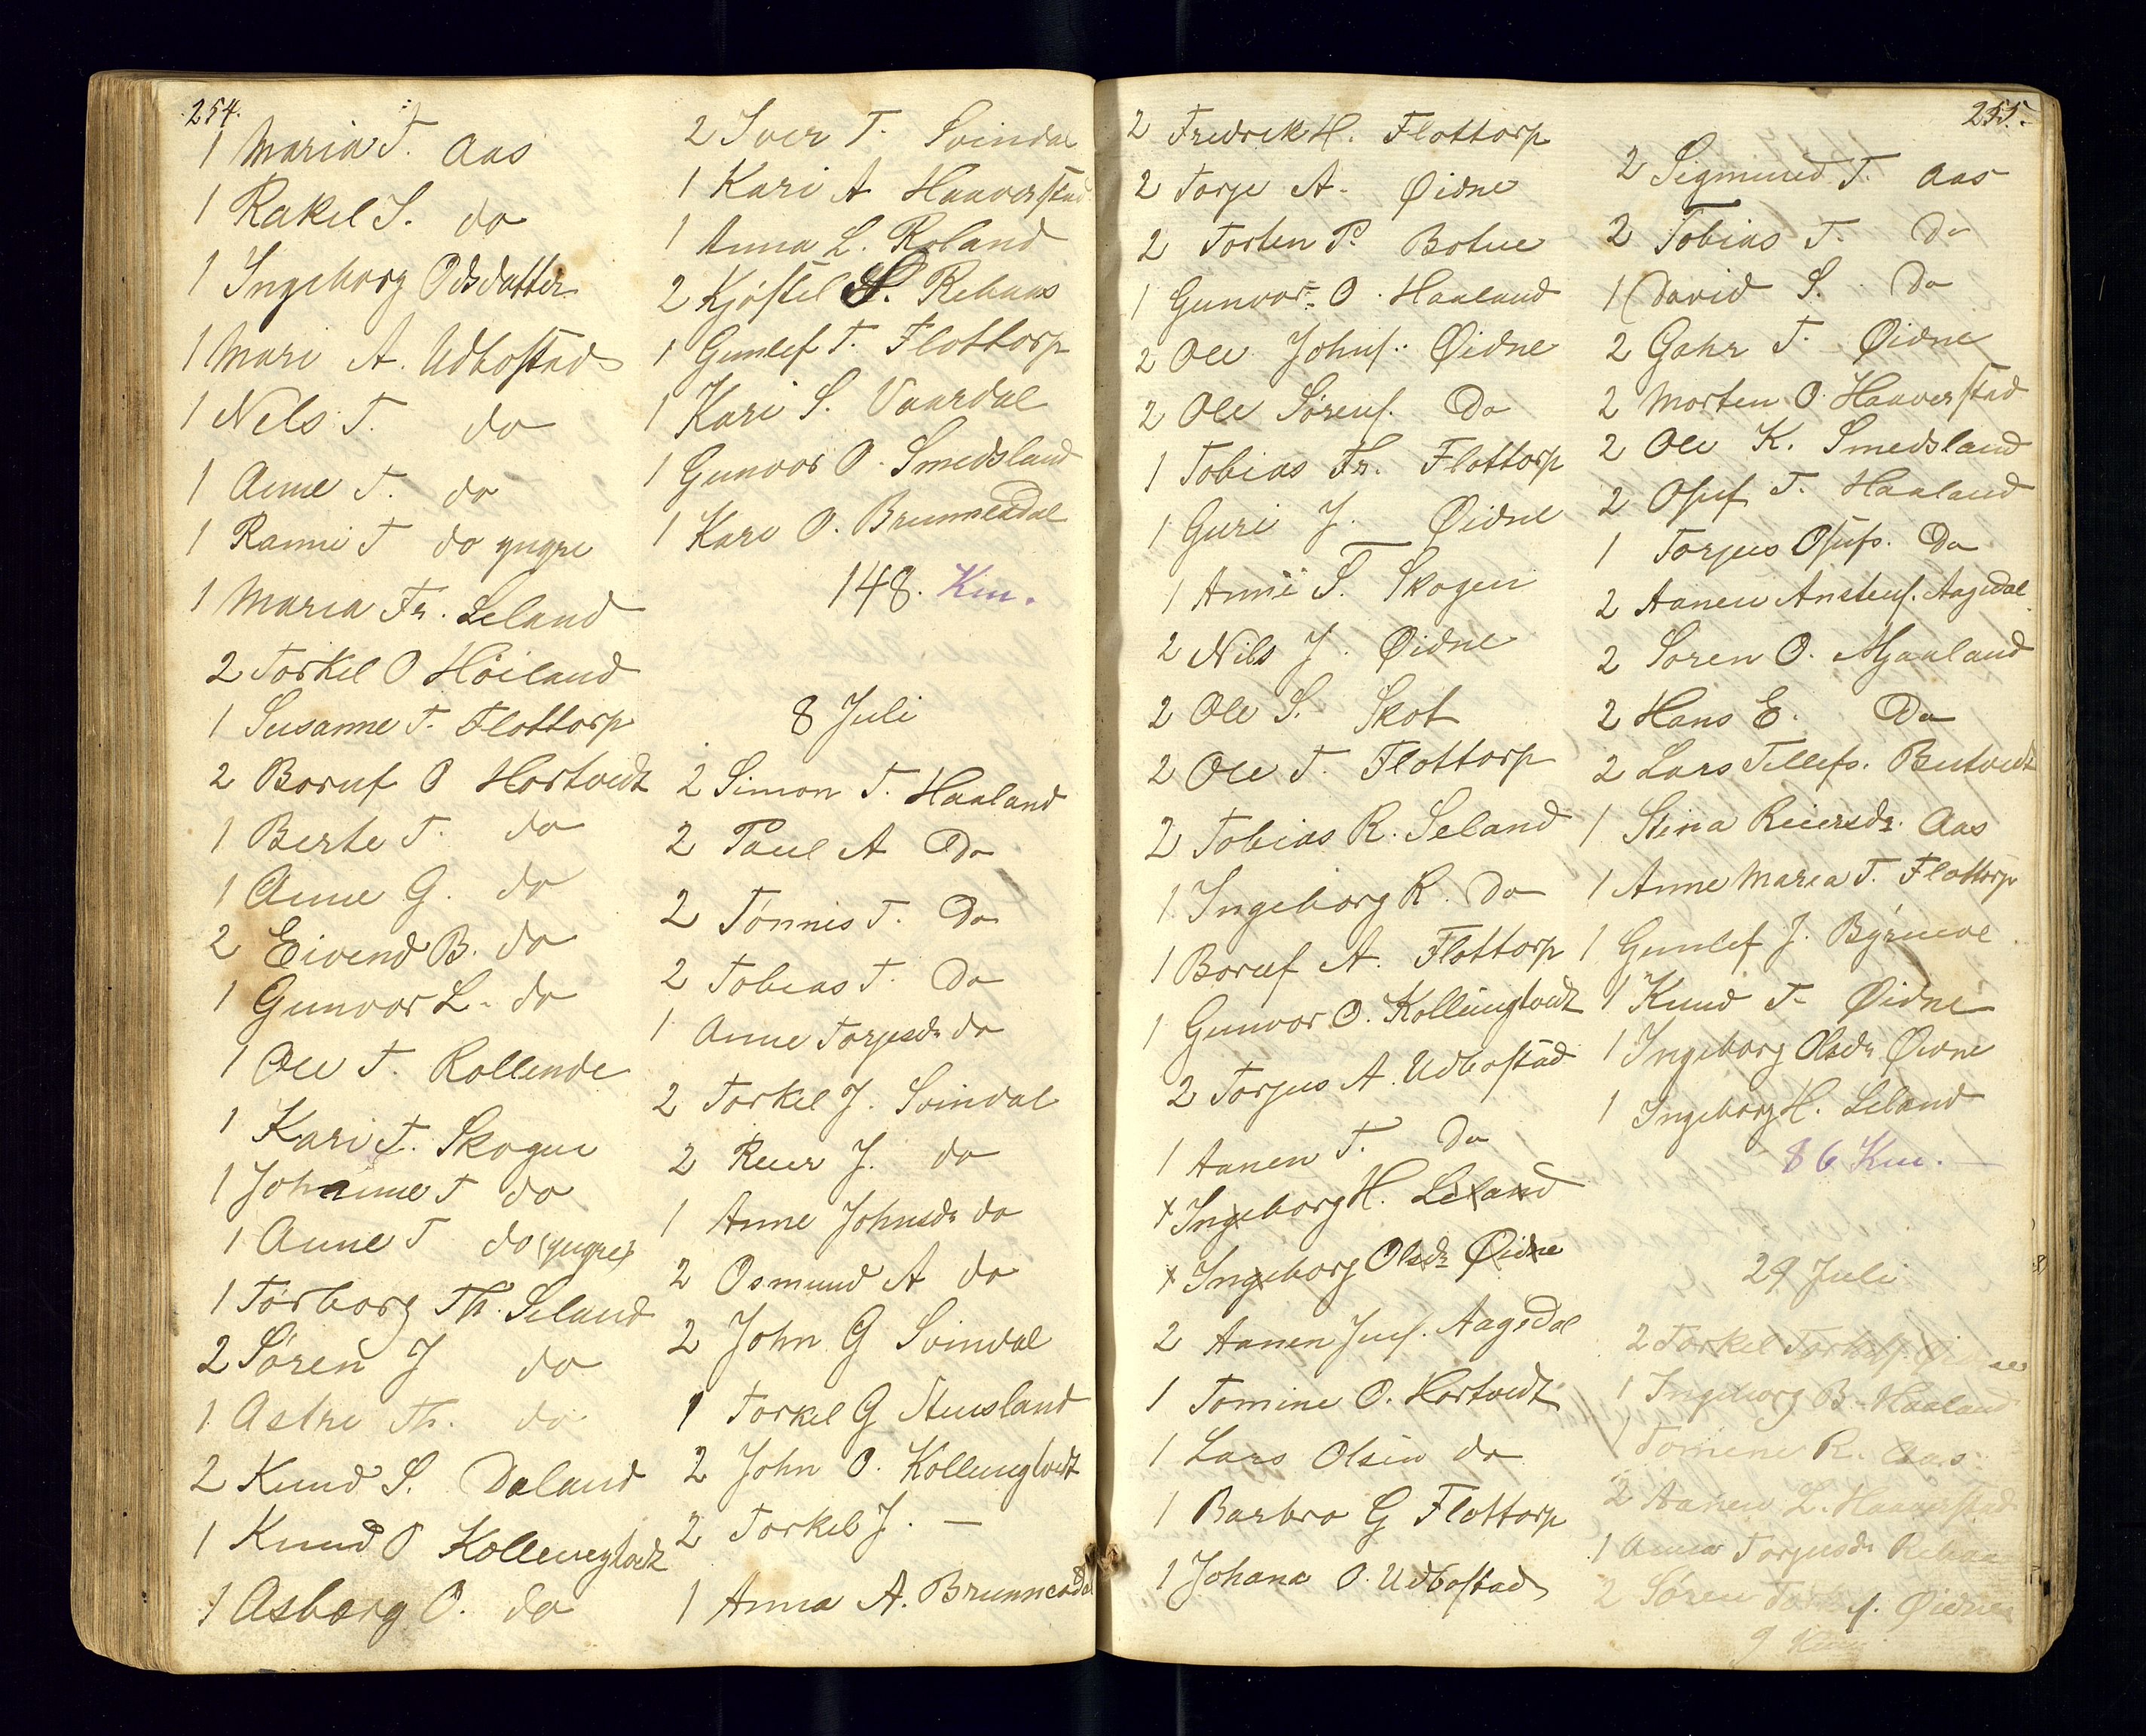 254.
1 Maria T. Aas
1 Rakel S. do
1 Ingeborg Odsdatter
1 Mari A. Udbostad
1 Nels T. do
1 Anne T. do
1 Ranni T do yngre
1 Maria Fr. Seland
2 Torkel O Höiland
1 Susanne T. Flottorp
2 Boruf O Hortvedt
1 Berte T. do
1 Anne G. do
2 Eivend B. do
1 Gunvor L. do
1 Ole T. Rollende
1 Kari T. Skogen
1 Johanne T do
1 Anne T do (yngre)
1 Torborg Th. Seland
2 Søren J do
1 Astri Th. do
2 Knud S. Daland
1 Knud O Kollungtvedt
1 Asborg O. do
2 Iver T. Svindal
1 Kari A Haaverstad
1 Anna L. Roland
2 Kjöstel S. Rehaas
1 Gunlef T. Flottorp
1 Kari S. Vaardal
1 Gunvor O. Smedsland
1 Kari O. Brunnesdal
148. Km.
8 Juli
2 Simon T. Haaland
2 Paul A Do
2 Tönnis T. Do
2 Tobias T. Do
1 Anne Torjusdr do
2 Torkel J. Svindal
2 Reier J. do
1 Anne Johnsdr do
2 Osmund A do
2 John G Svindal
1 Torkel G Stensland
2 John O. Kollungtvedt
2 Torkel J. —
1 Anna A. Brunnesdal
255.
2 Fredrik H. Flottorp
2 Torje A. Øidne
2 Torten P. Botne
1 Gunvor O. Haaland
2 Ole Johns. Øidne
2 Ole Sørens. Do
1 Tobias Fr. Flottorp
1 Guri J. Øidne
1 Anne S. Skogen
2 Nils J. Øidne
2 Ole S. Skot
2 Ole T. Flottorp
2 Tobias R. Seland
1 Ingeborg R. Do
1 Boruf A. Flottorp
1 Gunvor O. Kollungtvedt
2 Torjus A. Udbostad
1 Aanen T. Do
x Ingeborg H. Leland
x Ingeborg Olsdr Øidne
2 Aanen Juls. Aagedal
1 Tomine O. Hortvedt
1 Lars Olsen do
1 Barbro G Flottorp
1 Johana O. Udbostad
2 Sigmund T. Aas
2 Tobias T. Do
1 David S. Do
2 Gahr T. Øidne
2 Morten O. Haaverstad
2 Ole K. Smedsland
2 Osuf T. Haaland
1 Torjus Osufs. Do
2 Aanen Anstens. Aagedal
2 Søren O. Mjaaland
2 Hans E. Do
2 Lars Tellefs. Butvedt
1 Stina Reiersdr. Aas
1 Anne Maria T. Flottorp
1 Gunlef J.
1 Knud T. Øidne
1 Ingeborg Olsdr Øidne
1 Ingeborg H. Leland
86 Km.
29 Juli
2 Torkel Torkels. Øidne
1 Ingeborg B. Haaland
1 Tomine R. Aas
2 Aanen L. Haaverstad
1 Anna Torjusdr Rehaas
2 Søren Øidne
9 Km